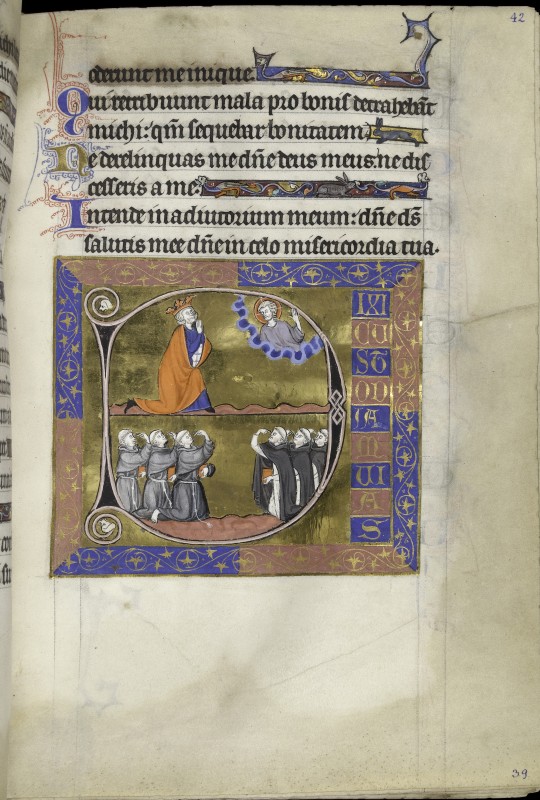 42
oderunt me inique
Qui retribuunt mala pro bonis detrahebāt
michi: qm̄ sequebar bonitatem
Ne derelinquas me dn̄e deus meus: ne dis
cesseris a me
Intende in adiutorium meum: dn̄e ds̄
salutis mee dn̄e in celo misericordia tua.
D
IXI
CU
STO
DI
A
M
UI
A
S
39